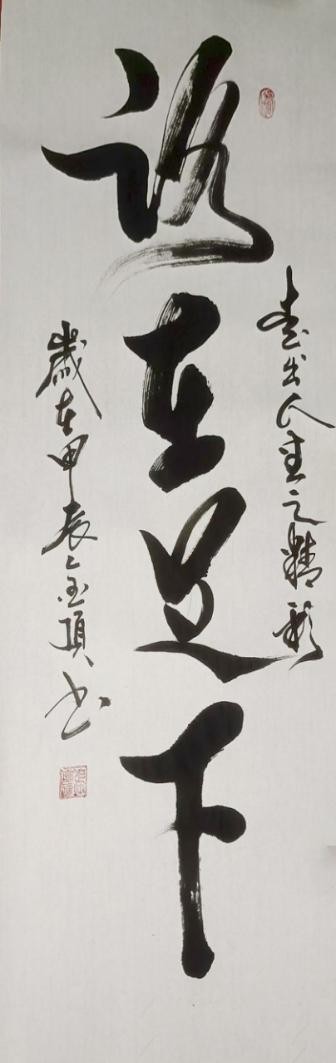 走出人生之精彩
路在足下
歲在甲辰 頂書